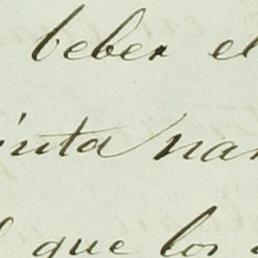 beber el
inta nar
que los